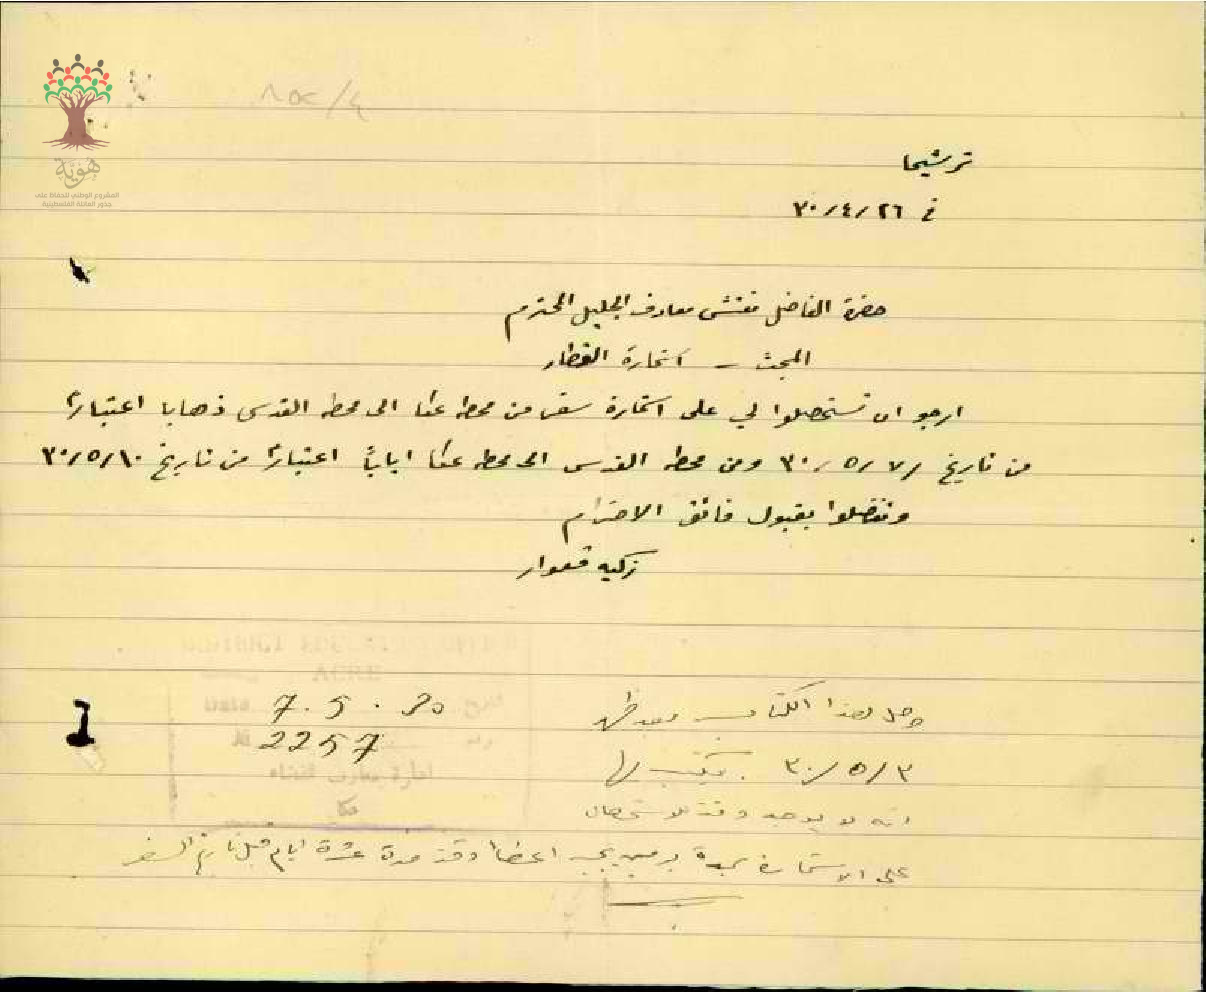 ٨٥٢/٤
هوية
المشروع الوطني للحفاظ على
جذور العائلة الفلسطينية
ترشيحا
في ٢٦/٤/٣٠
حضرة الفاضل مفتش معارف الجليل المحترم
المبحث - استمارة القطار
ارجو ان تستحصلوا لي على استمارة سفر من محطه عكا الى محطه القدس ذهابا اعتبارًا
من تاريخ ٧/٥/٣٠ ومن محطه القدس الى محطه عكا ايابًا اعتبارًا من تاريخ ١٠/٥/٣٠
وتفضلوا بقبول فائق الاحترام
زكيه قعوار
DISTRICT EDUCATION OFFICE
ACRE
Date 7.5.30 تاريخ
No 2257 رقم
ادارة معارف القضاء
عكا
وصل هذا الكتاب بعد ظهر
٣/٥/٣٠. يكتب لها
انه لا يوجد وقت للاستحصال
على الاستمارة بمدة يومين يجب اعطاء وقت مدة عشرة ايام قبل تاريخ السفر